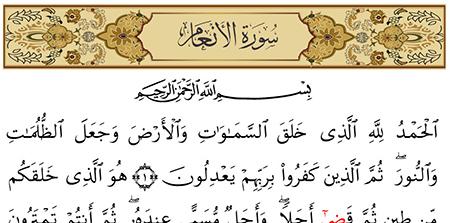 سُورَةُ الأَنعَامِ
بِسْمِ ٱللَّهِ ٱلرَّحْمَٰنِ ٱلرَّحِيمِ
ٱلْحَمْدُ لِلَّهِ ٱلَّذِى خَلَقَ ٱلسَّمَٰوَٰتِ وَٱلْأَرْضَ وَجَعَلَ ٱلظُّلُمَٰتِ
وَٱلنُّورَ ۖ ثُمَّ ٱلَّذِينَ كَفَرُوا۟ بِرَبِّهِمْ يَعْدِلُونَ ﴿١﴾ هُوَ ٱلَّذِى خَلَقَكُم
مِّن طِينٍ ثُمَّ قَضَىٰٓ أَجَلًا ۖ وَأَجَلٌ مُّسَمًّى عِندَهُۥ ۖ ثُمَّ أَنتُمْ تَمْتَرُونَ